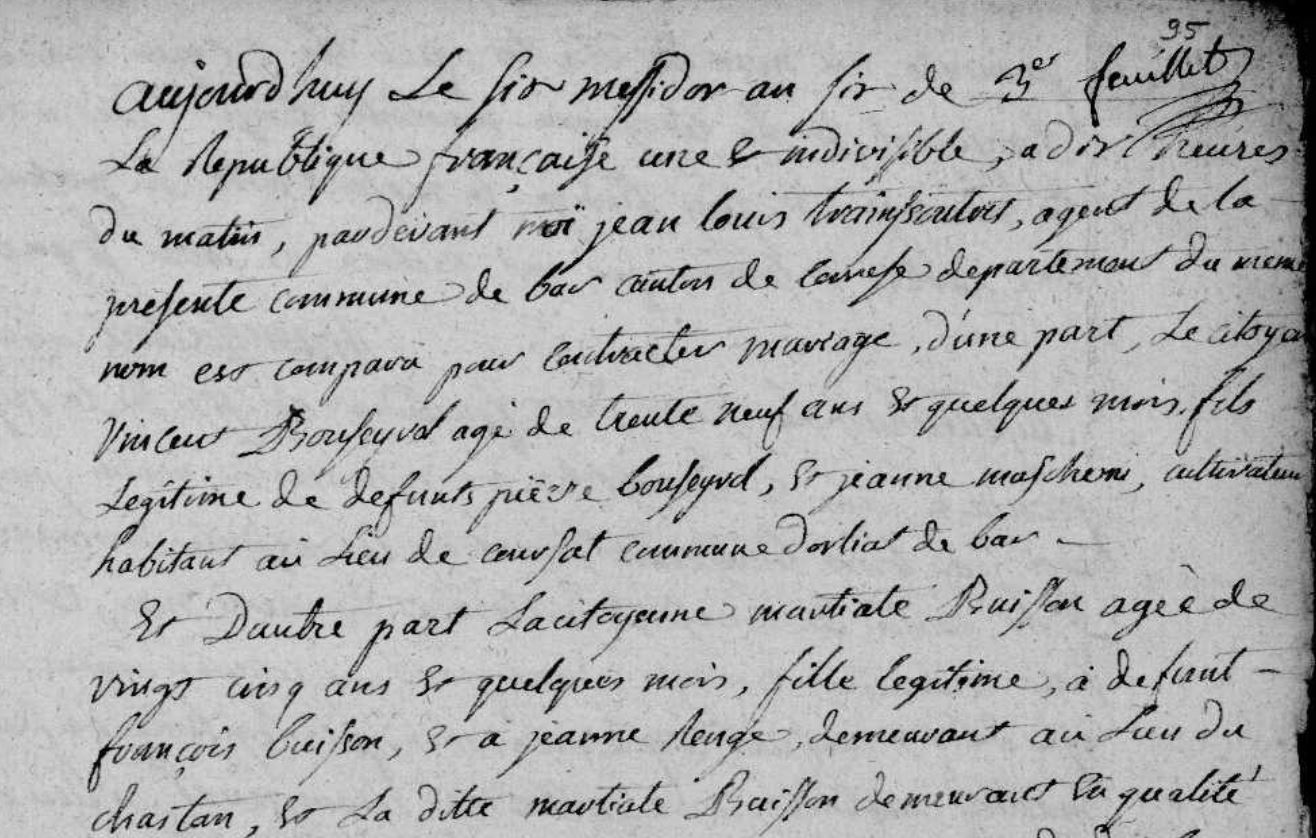 95
aujourd huy Le six messidor an six de 3er feuillet
La Republique française une & indivisible, a dix heures
du matin, pardevant moi jean louis trainsoutrot, agent de la
presente commune de bar canton de correse departement du meme
nom est comparu pour contracter mariage, d'une part, Le citoyen
vincent Bouseyrol agé de trente neuf ans & quelques mois, fils
Legitime de defunts pierre bouseyrol, & jeanne mascheni, cultivateur
habitant au Lieu de coursat commune d'orliat de bar
Et D'autre part La citoyenne martiale Buisson agée de
vingt cinq ans & quelques mois, fille legitime, à defunt
françois buisson, & a jeanne Renge, demeurant au Lieu du
chastan, & La ditte martiale Buisson demeurant En qualité